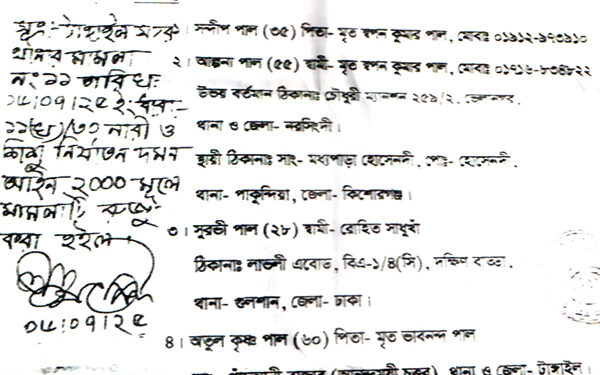 সূত্র:- টাঙ্গাইল সদর
থানার মামলা
নং ১১ তারিখ:
০৫/০৭/২৫ ইং ধারা:-
১১(গ)/৩০ নারী ও
শিশু নির্যাতন দমন
আইন ২০০০ মূলে
মামলাটি রুজু
করা হইল
০৫/০৭/২৫
১। সন্দীপ পাল (৩৫) পিতা- মৃত স্বপন কুমার পাল, মোবাঃ
২। আহনা পাল (৫৫) স্বামী- মৃত স্বপন কুমার পাল, মোবাঃ
উভয় বর্তমান ঠিকানাঃ চৌধুরী ম্যানশন ২৫১/২, জেলগেট,
থানা ও জেলা- নরসিংদী।
স্থায়ী ঠিকানাঃ সাং- মধ্যপাড়া হোসেন্দী, পোঃ- হোসেন্দী,
থানা- পাকুন্দিয়া, জেলা- কিশোরগঞ্জ।
৩। সুরভী পাল (২৮) স্বামী- রোহিত
ঠিকানাঃ লাভলী এবোড, বিএ-১/৪(সি), দক্ষিণ বাড্ডা,
থানা- গুলশান, জেলা- ঢাকা।
৪। অতুল কৃষ্ণ পাল (৬০) পিতা- মৃত তারানন্দ পাল
থানা ও জেলা- টাঙ্গাইল।